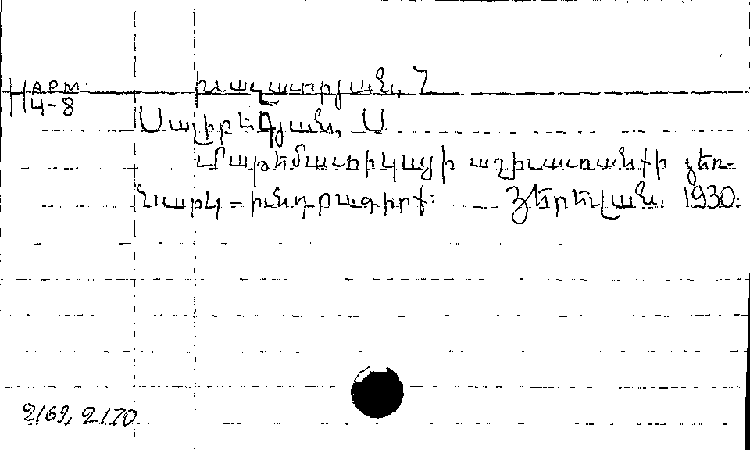 АРМ.
4-8
Խաչատրյան, Հ
Մալիբեգյան, Ս
Մաթեմատիկայի աշխատանքի ձեռ-
նարկ - խնդրագիրք: Յերևան. 1930.
2169, 2170